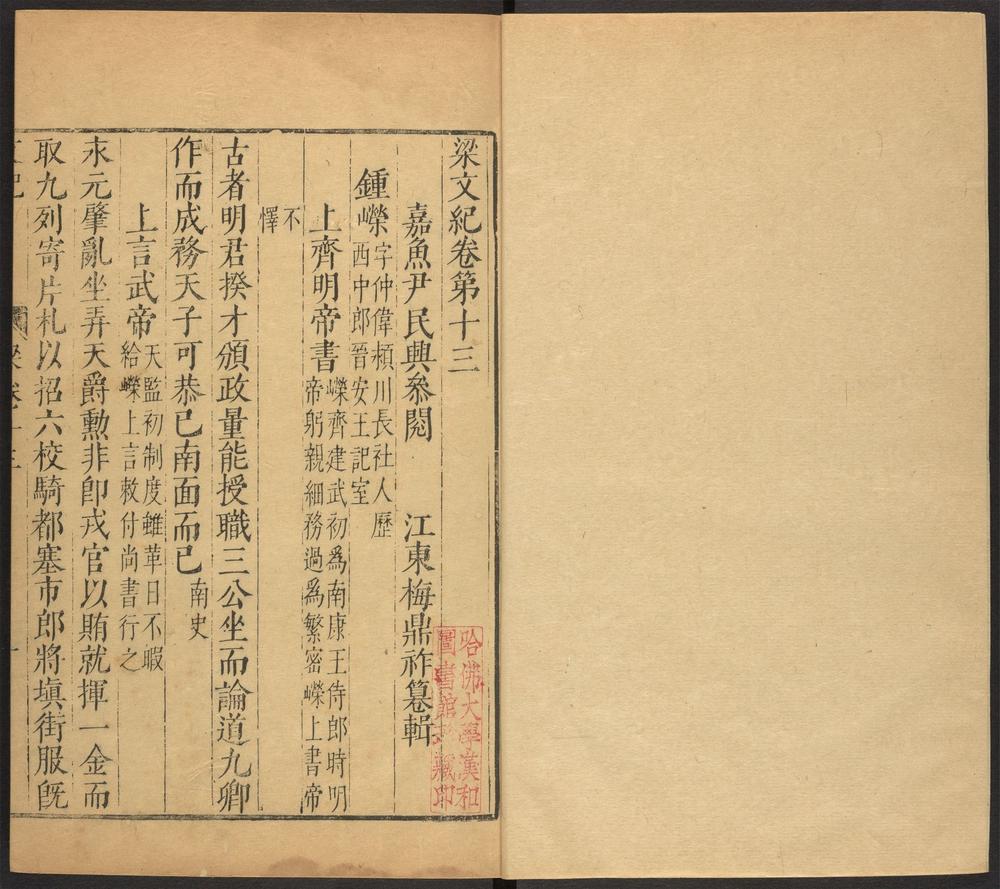 梁文紀卷第十三
嘉魚尹民興叅閱　江東梅鼎祚纂輯
鍾嶸字仲偉頴川長社人歷
西中郎晉安王記室
上齊明帝書嶸齊建武初爲南康王侍郎時明
帝躬親細務過爲繁密嶸上書帝
不
懌
古者明君揆才頒政量能授職三公坐而論道九卿
作而成務天子可恭已南面而已南史
上言武帝天監初制度雖革日不暇
給嶸上言敕付尚書行之
永元肇亂坐弄天爵勲非卽戎官以賄就揮一金而
取九列寄片札以招六校騎都塞市郎將塡街服旣
哈佛大學漢和
圖書館珍藏印